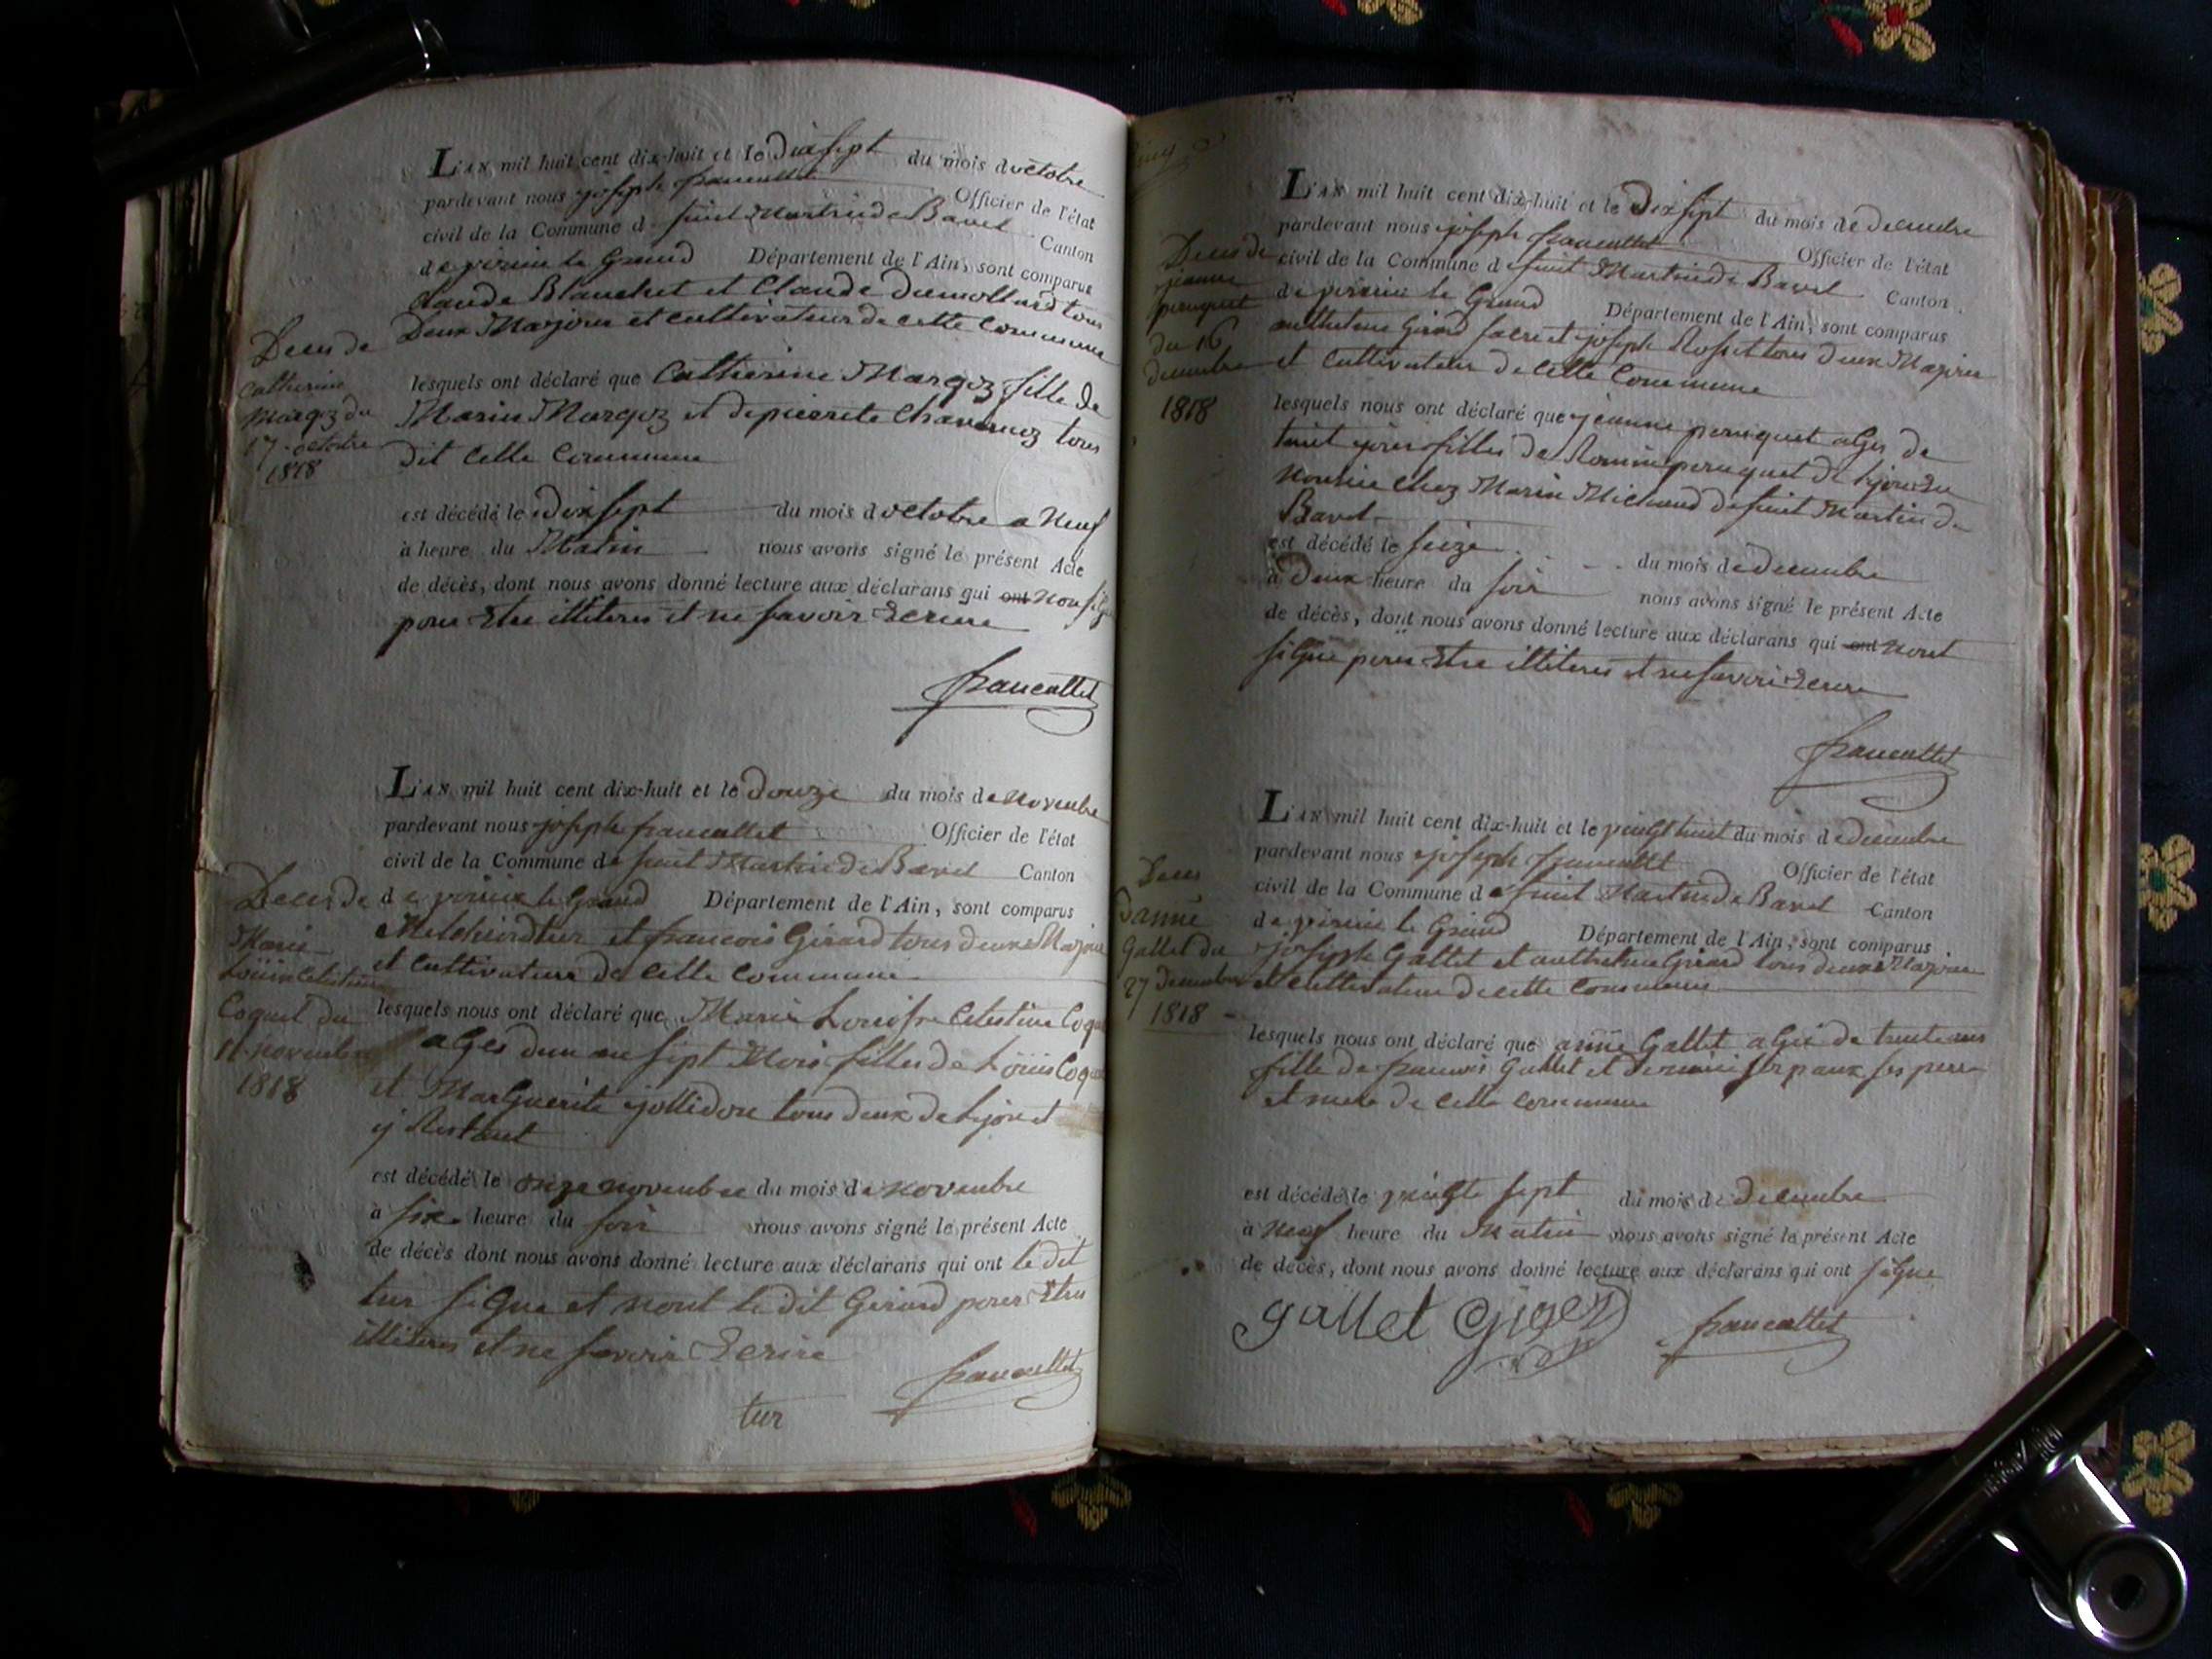 L'AN mil huit cent dix-huit et le dix sept du mois d octobre
pardevant nous joseph francallet Officier de l'état
civil de la Commune d saint Martin de Bavel Canton
de virieu le Grand Département de l'Ain, sont comparus
Claude Blanchet et Claude Dumollard tous
Deux Majeurs et cultivateurs de cette Commune
Deces de
Catherine
Margoz du
17 octobre
1818
lesquels ont déclaré que Catherine Margoz fille de
Marin Margoz et de pierrete tous
dit Cette Commune
est décédé le Dix sept du mois d octobre a Neuf
à heure du Matin nous avons signé le présent Acte
de décès, dont nous avons donné lecture aux déclarans qui ont Non
pour Etre illiteres et ne savoir Ecrire
francallet
L'AN mil huit cent dix-huit et le Douze du mois de Novembre
pardevant nous joseph francallet Officier de l'état
civil de la Commune de saint Martin de Bavel Canton
de virieu le Grand Département de l'Ain, sont comparus
Melchior tur et francois Girard tous deux Majeurs
et Cultivateurs de Cette Commune
Deces de
Marie
Coquet du
11 novembre
1818
lesquels nous ont déclaré que Marie Louise Celestine
alGes dun an sept Mois filles de Loüis
et MarGuerite tous deux de et
y Restant
est décédé le onze novembre du mois de Novembre
à six heure du soir nous avons signé le présent Acte
de décès dont nous avons donné lecture aux déclarans qui ont le dit
tur siGne et nont le dit Girard pour Etre
illiteres et ne savoir Ecrire
francallet
tur
L'AN mil huit cent dix-huit et le Dix sept du mois de Decembre
pardevant nous joseph francallet Officier de l'état
civil de la Commune de saint Martin de Bavel Canton
de virieu le Grand Département de l'Ain, sont comparus
anthelme Girard et joseph Rosset tous deux Majeurs
et Cultivateur de Cette Commune
Deces de
jeanne
peruquet
du 16
decembre
1818
lesquels nous ont déclaré que jeanne peruquet alGes de
huit jours filles de peruquet de
chez Marin Michaud de saint Martin de
Bavel
est décédé le seize du mois de decembre
à Deux heure du soir nous avons signé le présent Acte
de décès, dont nous avons donné lecture aux déclarans qui ont Nont
siGne pour Etre illiteres et ne savoir Ecrire
francallet
L'AN mil huit cent dix-huit et le vinGt huit du mois de Decembre
pardevant nous joseph francallet Officier de l'état
civil de la Commune de saint Martin de Bavel Canton
de virieu le Grand Département de l'Ain, sont comparus
joseph Gallet et anthelme Girard tous deux Majeurs
et cultivateur de cette Commune
Deces
Danne
Gallet du
27 Decembre
1818
lesquels nous ont déclaré que anne Gallet alGée de trente ans
fille de francois Gallet et ses pere
et mere de cette commune
est décédé le vinGte sept du mois de Decembre
à Neuf heure du Matin nous avons signé le présent Acte
de décès, dont nous avons donné lecture aux déclarans qui ont siGne
gallet
francallet